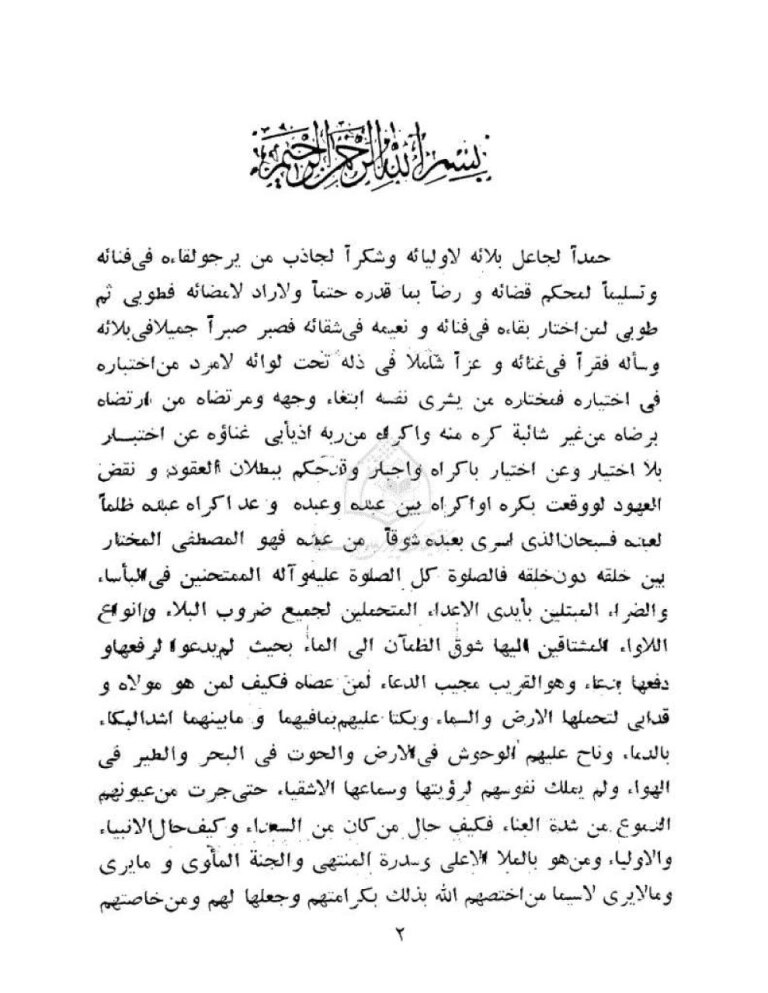 بسم الله الرحمن الرحيم
حمداً لجاعل بلائه لاوليائه وشكراً لجاذب من يرجولقاءه فى‌فنائه
وتسليماً لمحكم قضائه و رضاً بما قدره حتماً ولاراد لامضائه فطوبى ثم
طوبى لمن‌اختار بقاءه فى‌فنائه و نعيمه فى‌شقائه فصبر صبراً جميلافى‌بلائه
وسأله فقراً فى‌غنائه و عزاً شاملا فى ذله تحت لوائه لامرد من‌اختياره
فى اختياره فمختاره من يشرى نفسه ابتغاء وجهه ومرتضاه من ارتضاه
برضاه من‌غير شائبة كره منه واكراه من‌ربه اذيأبى غناؤه عن اختبار
بلا اختيار وعن اختيار باكراه واجبار وقدحكم ببطلان العقود و نقض
العهود لووقعت بكره اواكراه بين عبده وعبده و عد اكراه عبده ظلماً
لعبده فسبحان‌الذى اسرى بعبده شوقاً من عبده فهو المصطفى المختار
بين خلقه دون‌خلقه فالصلوة كل الصلوة عليه‌وآله الممتحنين فى‌البأساء
والضراء المبتلين بأيدى الاعداء المتحملين لجميع ضروب البلاء وانواع
اللاواء المشتاقين اليها شوق الظمآن الى الماء بحيث لم‌يدعوا لرفعهاو
دفعها بدعاء وهوالقريب مجيب الدعاء لمن عصاه فكيف لمن هو مولاه و
قدابى لتحملها الارض والسماء وبكتا عليهم‌بمافيهما و مابينهما اشدالبكاء
بالدماء وناح عليهم الوحوش فى‌الارض والحوت فى البحر والطير فى
الهواء ولم يملك نفوسهم لرؤيتها وسماعها الاشقياء حتى‌جرت من‌عيونهم
الدموع من شدة العناء فكيف حال من‌كان من السعداء وكيف‌حال‌الانبياء
والاولياء ومن‌هو بالملا الاعلى وسدرة المنتهى والجنة المأوى و مايرى
ومالايرى لاسيما من‌اختصهم الله بذلك بكرامتهم وجعلها لهم ومن‌خاصتهم
٢